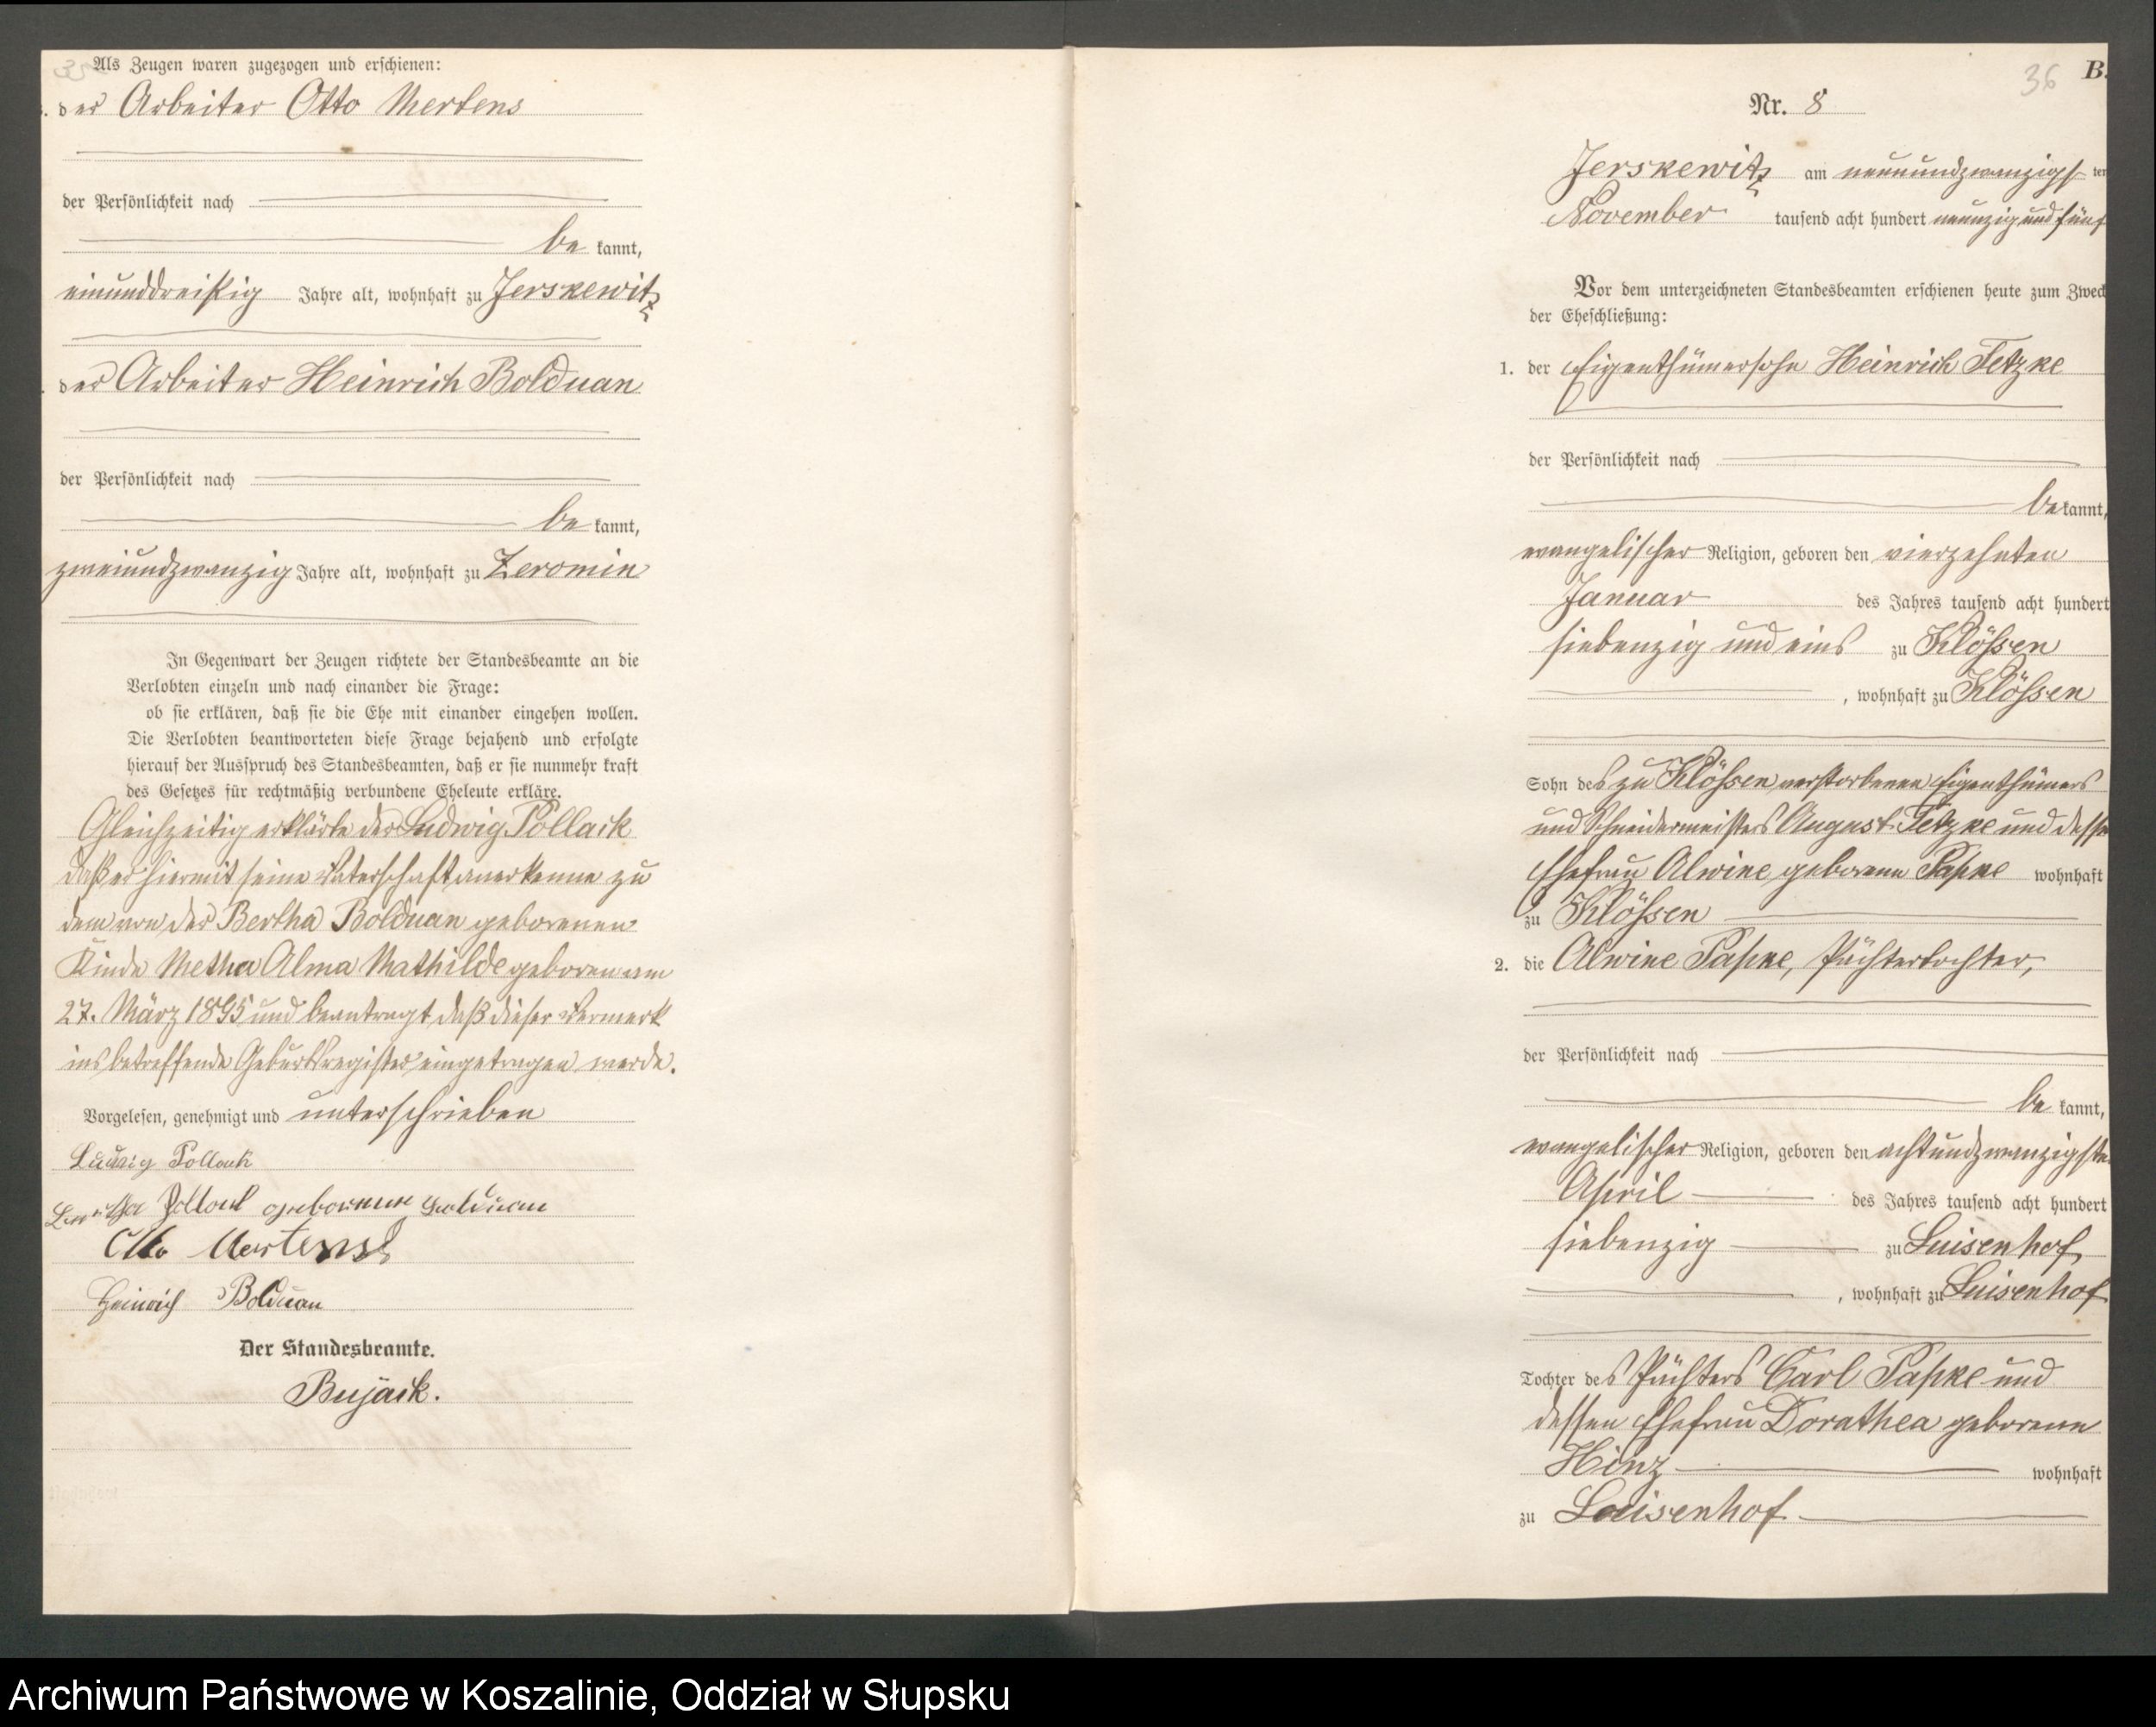 Als Zeugen waren zugezogen und erschienen:
der Arbeiter Otto Mertens
der Persönlichkeit nach
be kannt,
einunddreißig Jahre alt, wohnhaft zu Jerskewitz
der Arbeiter Heinrich Bolduan
der Persönlichkeit nach
be kannt,
zweiundzwanzig Jahre alt, wohnhaft zu Zeromin
In Gegenwart der Zeugen richtete der Standesbeamte an die
Verlobten einzeln und nach einander die Frage:
ob sie erklären, daß sie die Ehe mit einander eingehen wollen.
Die Verlobten beantworteten diese Frage bejahend und erfolgte
hierauf der Ausspruch des Standesbeamten, daß er sie nunmehr kraft
des Gesetzes für rechtmäßig verbundene Eheleute erkläre.
Gleichzeitig erklärte der Ludwig Pollack
daß er hiermit seine Vaterschaft anerkenne zu
dem von der Bertha Bolduan geborenen
Kinde Metha Alma Mathilde geboren am
27. März 1895 und beantragt, daß dieser Vermerk
ins betreffende Geburtsregister eingetragen werde.
Vorgelesen, genehmigt und unterschrieben
Ludwig Pollack
Bertha Pollack geborene Bolduan
Otto Mertens
Heinrich Bolduan
Der Standesbeamte.
Bujack.
36
B.
Nr. 8
Jerskewitz am neunundzwanzigsten
November tausend acht hundert neunzig und fünf
Vor dem unterzeichneten Standesbeamten erschienen heute zum Zweck
der Eheschließung:
1. der Eigenthümersohn Heinrich Tetzke
der Persönlichkeit nach
be kannt,
evangelischer Religion, geboren den vierzehnten
Januar des Jahres tausend acht hundert
siebenzig und eins zu Klössen
, wohnhaft zu Klössen
Sohn des zu Klössen verstorbenen Eigenthümers
und Schneidermeisters August Tetzke und dessen
Ehefrau Alwine geborene Papke wohnhaft
zu Klössen
2. die Alwine Papke, Pächtertochter,
der Persönlichkeit nach
be kannt,
evangelischer Religion, geboren den achtundzwanzigsten
April des Jahres tausend acht hundert
siebenzig zu Luisenhof
, wohnhaft zu Luisenhof
Tochter des Pächters Carl Papke und
dessen Ehefrau Dorathea geborene
Hinz wohnhaft
zu Louisenhof
Archiwum Państwowe w Koszalinie, Oddział w Słupsku